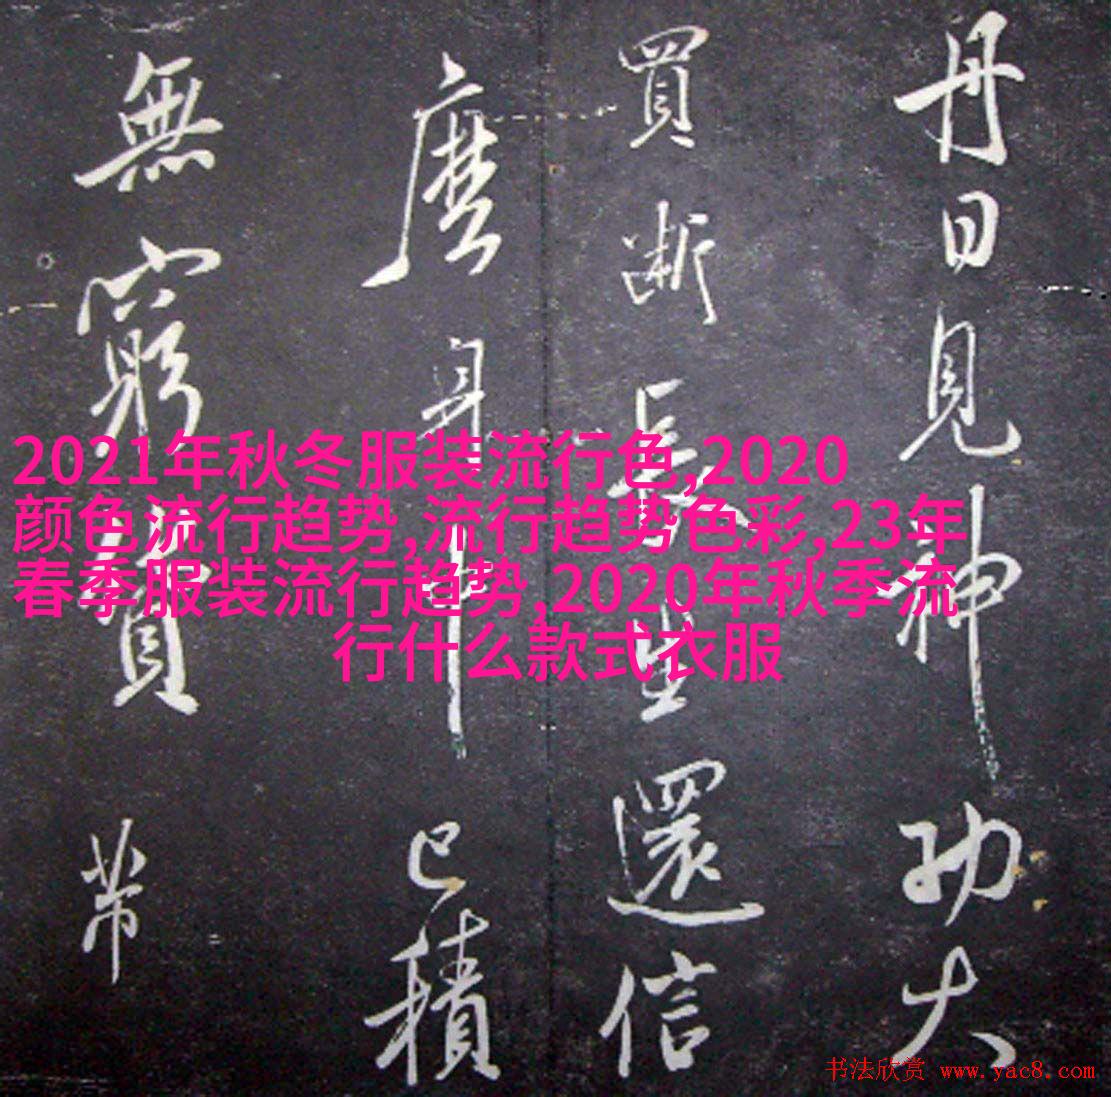 丹日見神功大
買斷長生還信
麼身中已積
無窮
2021年秋冬服装流行色,2020
颜色流行趋势,流行趋势色彩,23年
春季服装流行趋势,2020年秋季流
行什么款式衣服
书法欣赏 www.yac8.com